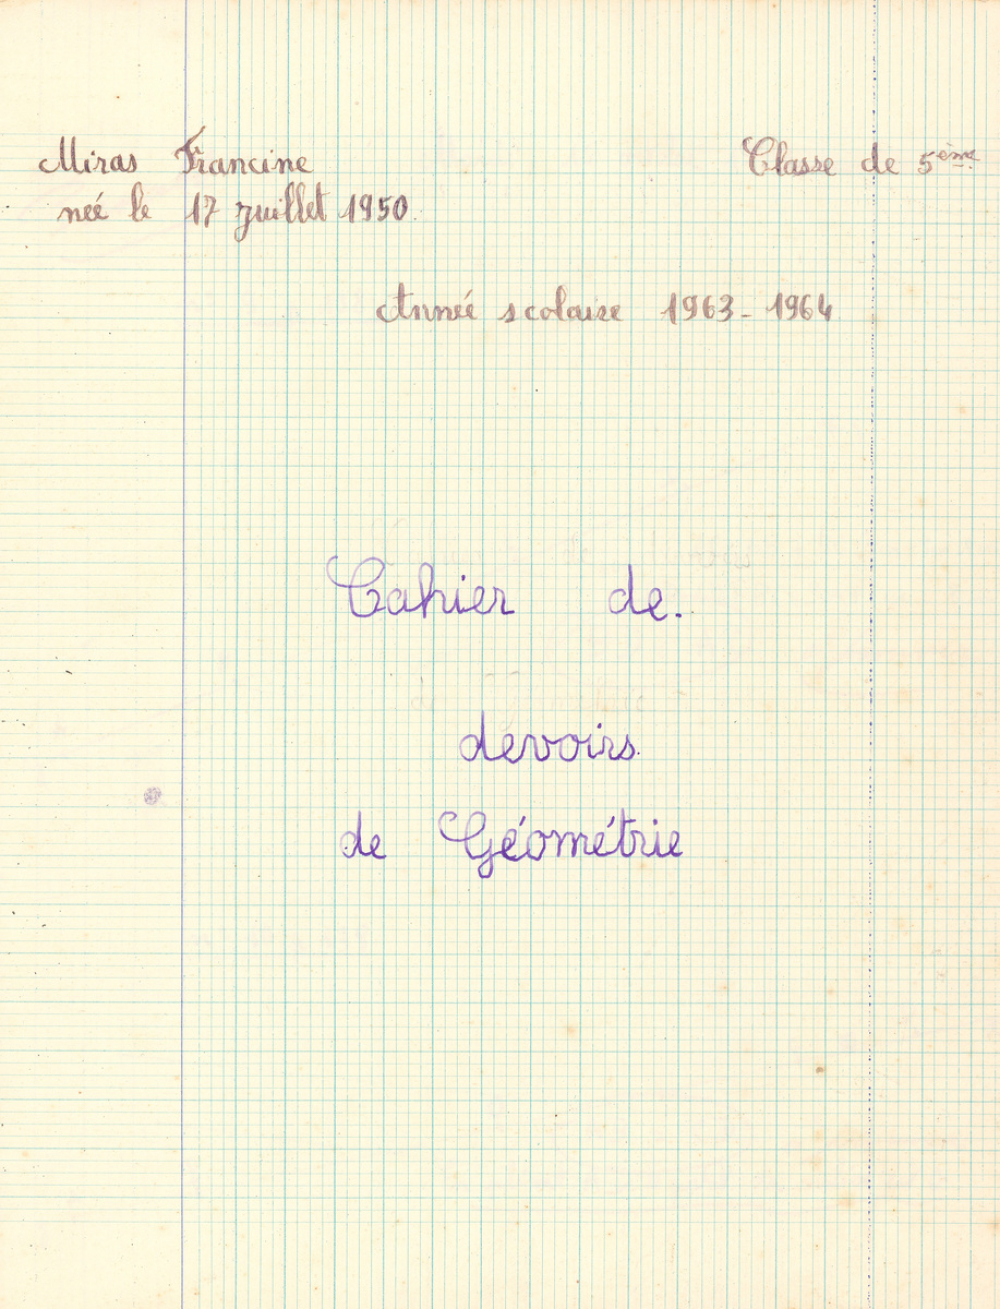 Miras Francine Classe de 5ème
neé le 17 juillet 1950.
Anneé scolaire 1963-1964
Cahier de.
devoirs.
de Géométrie